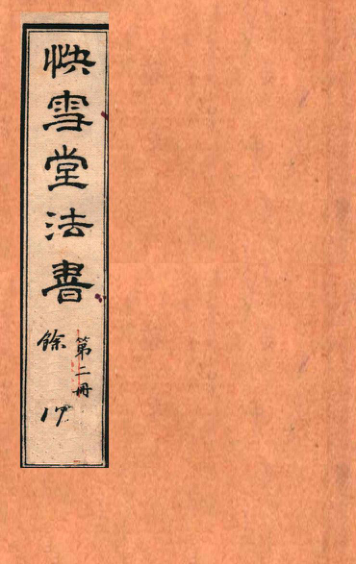 快雪堂法書
第二冊
餘
17